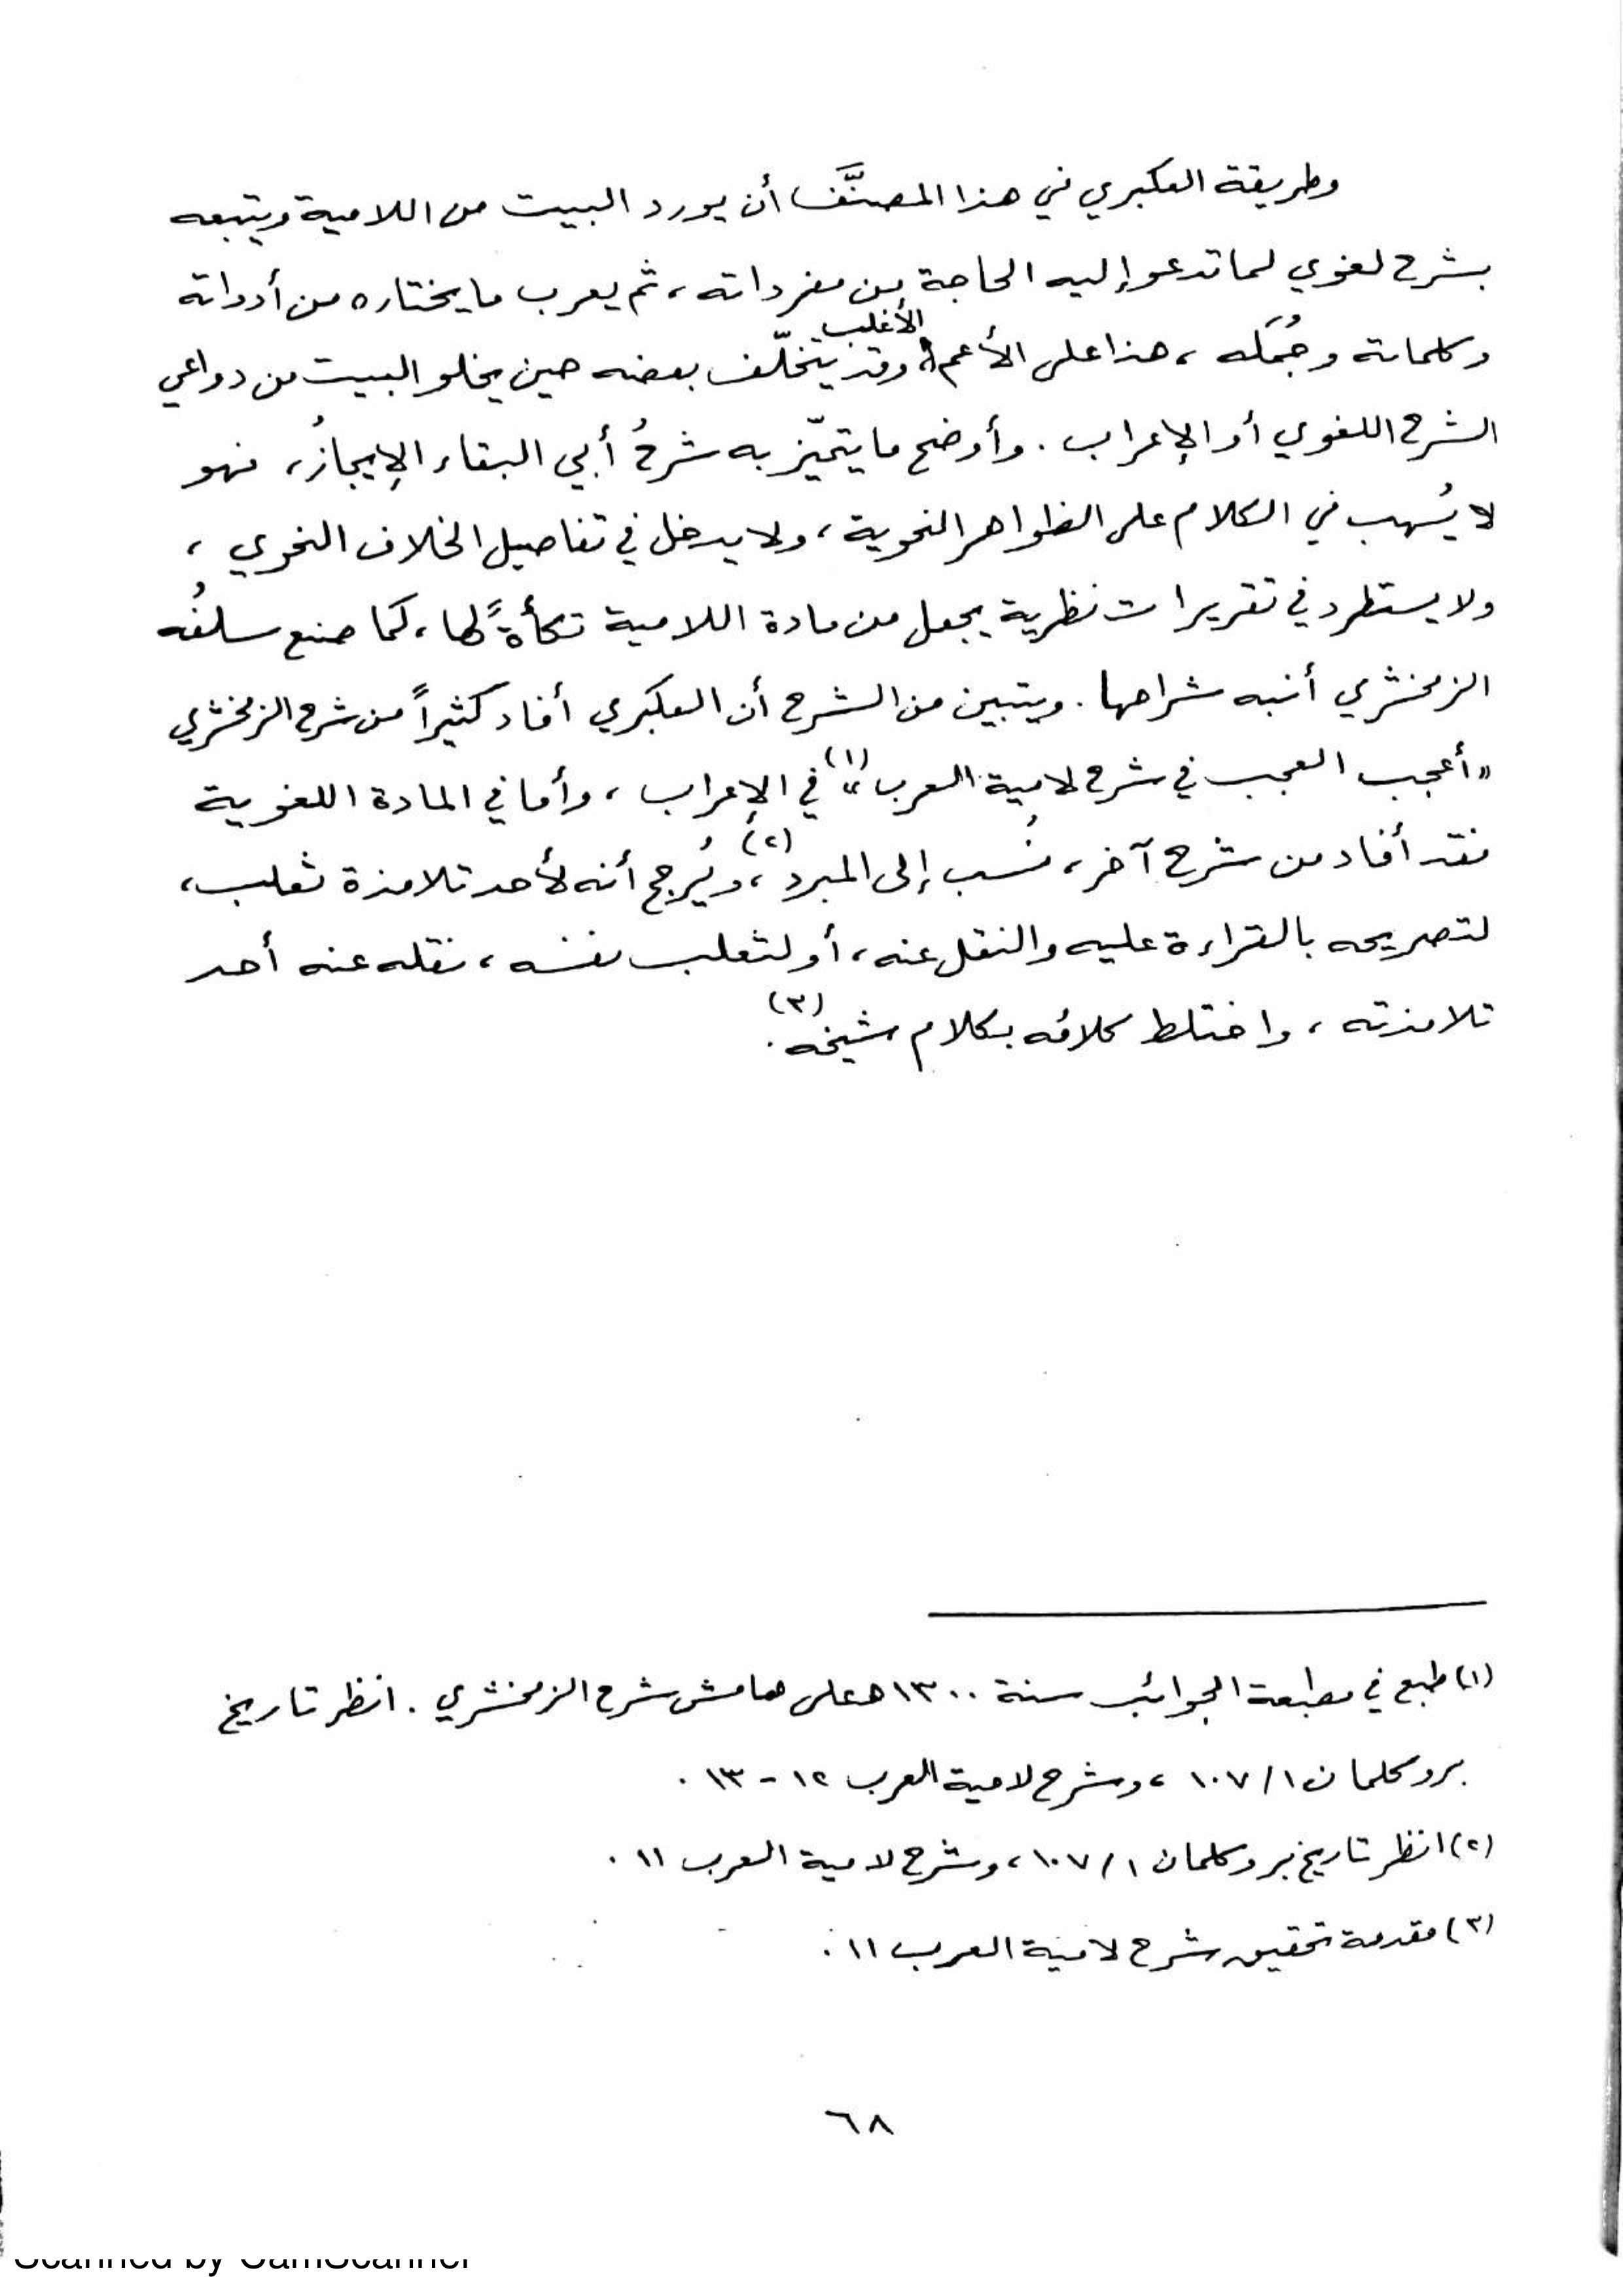 وطريقة العكبري في هذا المصنَّف أن يورد البيت من اللامية ويتبعه
بشرح لغوي لما تدعو إليه الحاجة من مفرداته ، ثم يعرب ما يختاره من أدواته
وكلماته وجُمَله ، هذا على الأعم الأغلب وقد يتخلّف بعضه حين يخلو البيت من دواعي
الشرح اللغوي أو الإعراب . وأوضح ما يتميّز به شرحُ أبي البقاء الإيجازُ ، فهو
لا يُسهب في الكلام على الظواهر النحوية ، ولا يدخل في تفاصيل الخلاف النحوي ،
ولا يستطرد في تقريرات نظرية يجعل من مادة اللامية تكأةً لها ، كما صنع سلفُه
الزمخشري أنبه شراحها . ويتبين من الشرح أن العكبري أفاد كثيراً من شرح الزمخشري
«أعجب العجب في شرح لامية العرب»(١) في الإعراب ، وأما في المادة اللغوية
فقد أفاد من شرح آخر ، نُسب إلى المبرد(٢) ، ويُرجح أنه لأحد تلامذة ثعلب ،
لتصريحه بالقراءة عليه والنقل عنه ، أو لثعلب نفسه ، نقله عنه أحد
تلامذته ، واختلط كلامُه بكلام شيخه(٣) .
(١) طبع في مطبعة الجوائب سنة ١٣٠٠هـ على هامش شرح الزمخشري . انظر تاريخ
بروكلمان ١/ ١٠٧ ، وشرح لامية العرب ١٢ - ١٣ .
(٢) انظر تاريخ بروكلمان ١/ ١٠٧ ، وشرح لامية العرب ١١ .
(٣) مقدمة تحقيق شرح لامية العرب ١١ .
٦٨
Scanned by CamScanner